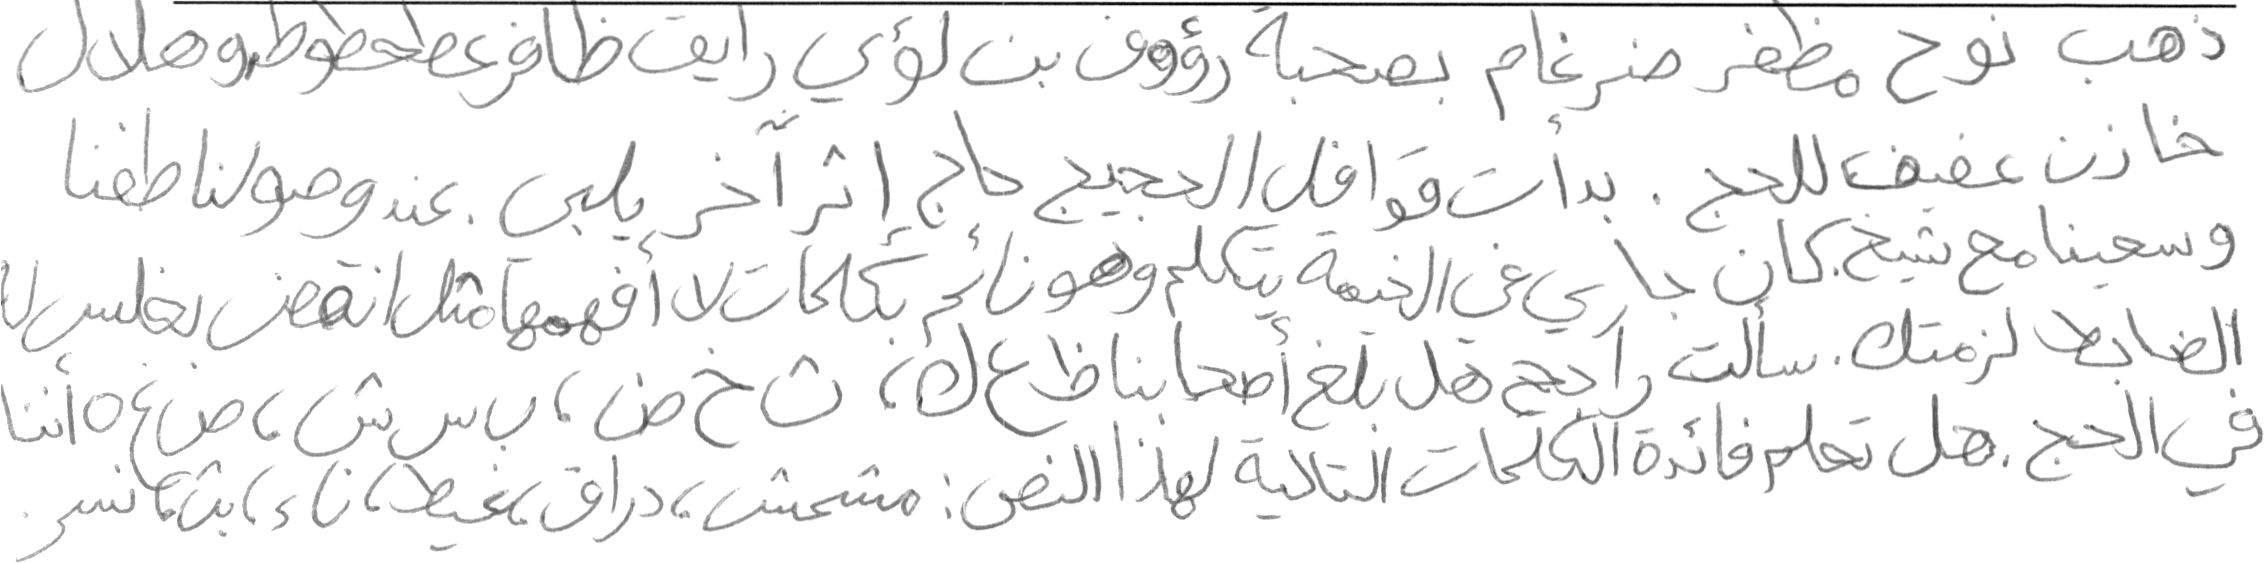 ذهب نوح مظفر ضرغام بصحبة رؤوف بن لؤي رايق ظافر عطعطوط وهلال
خازن عفيف للحج . بدأت قوافل الحجيج حاج إثر آخر يلبي . عند وصولنا طفنا
وسعينا مع شيخ . كان جاري في الخيمة يتكلم وهو نائم بكلمات لا أفهمها مثل انقض بغلس لا
الضابط لزمتك . سألت راجح هل بلغ أصحابنا ظ ع ك ، ث خ ض ، ب س ش ، ض غ ه أننا
في الحج . هل تعلم فائدة الكلمات التالية لهذا النص : مشمش ، دراق ، غيط ، ناء ، بث ، نسر .